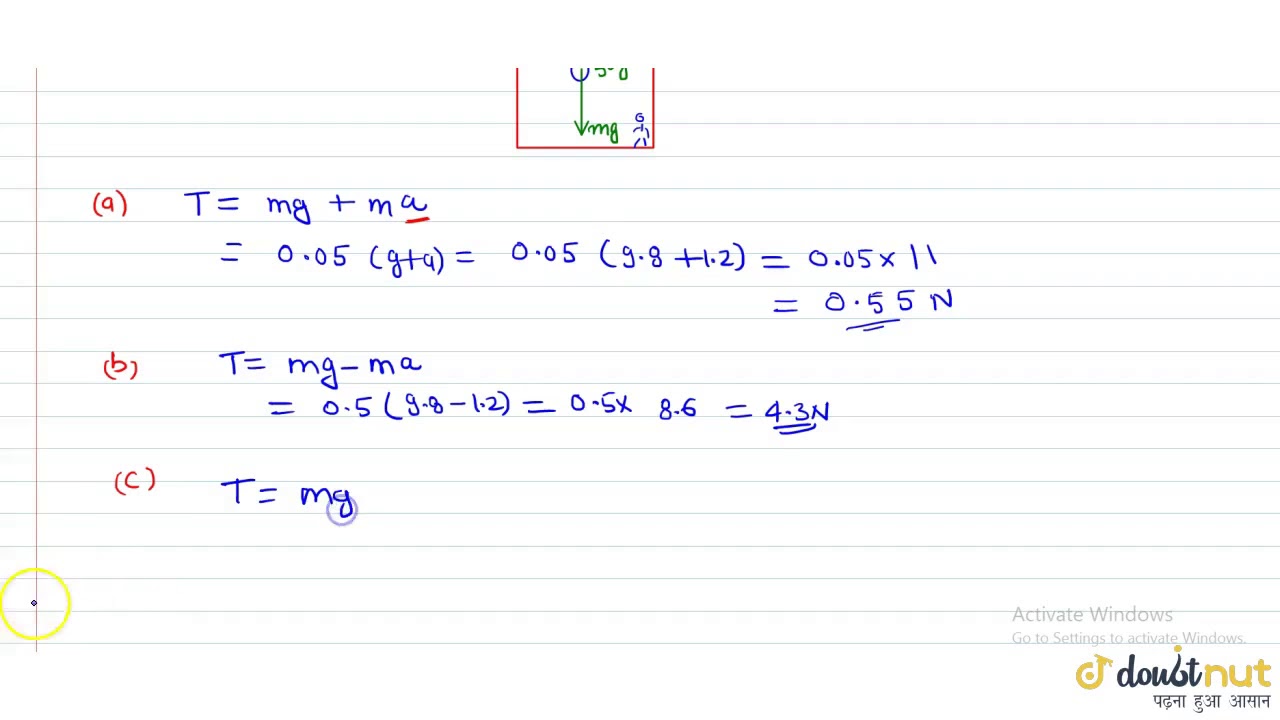 50g
mg
(a) T = mg + ma
= 0.05 (g+a) = 0.05 (9.8 + 1.2) = 0.05 × 11
= 0.55 N
(b) T = mg - ma
= 0.5 (9.8 - 1.2) = 0.5 × 8.6 = 4.3 N
(c) T = mg
Activate Windows
Go to Settings to activate Windows.
doubtnut
पढ़ना हुआ आसान